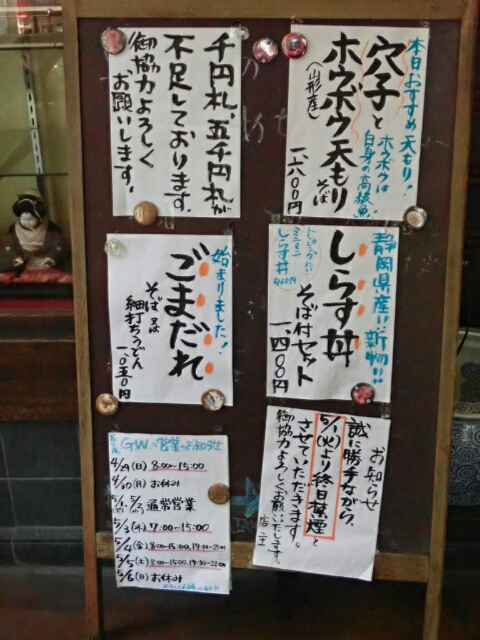 本日おすすめ天もり!
穴子と
ホウボウ天もりそば
ホウボウは
白身の高級魚
(山形産)
一、六〇〇円
千円札、五千円札が
不足しております。
御協力よろしく
お願いします。
静岡県産
新物!!
しらす丼
そば付セット
一、四〇〇円
ミニ
しらす丼
始まりました!
ごまだれ
そば又は
細打ちうどん
一、〇五〇円
お知らせ
誠に勝手ながら、
5/1(火)より終日禁煙と
させていただきます。
御協力よろしくお願いします。
店主
GWの営業のお知らせ
4/29(日) 8:00~15:00
4/30(月) お休み
5/1、5/2 通常営業
5/3(木) 7:00~15:00
5/4(金) 8:00~15:00、17:30~21:00
5/5(土) 8:00~15:00、17:30~21:00
5/6(日) お休み